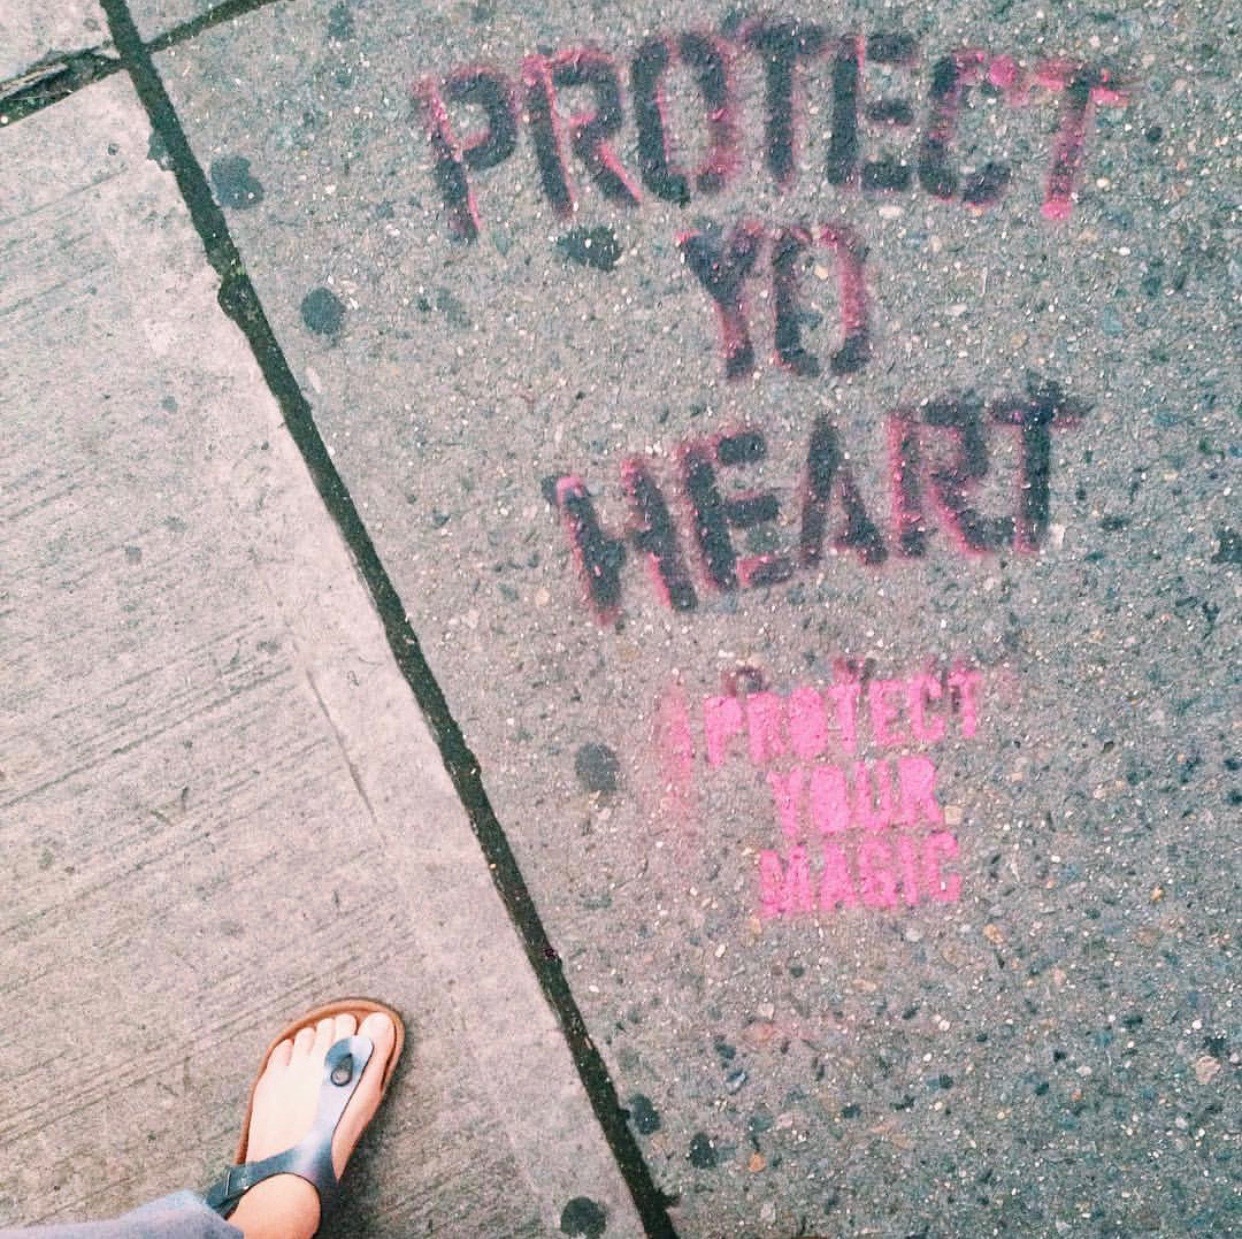 PROTECT
YO
HEART
PROTECT
YOUR
MAGIC